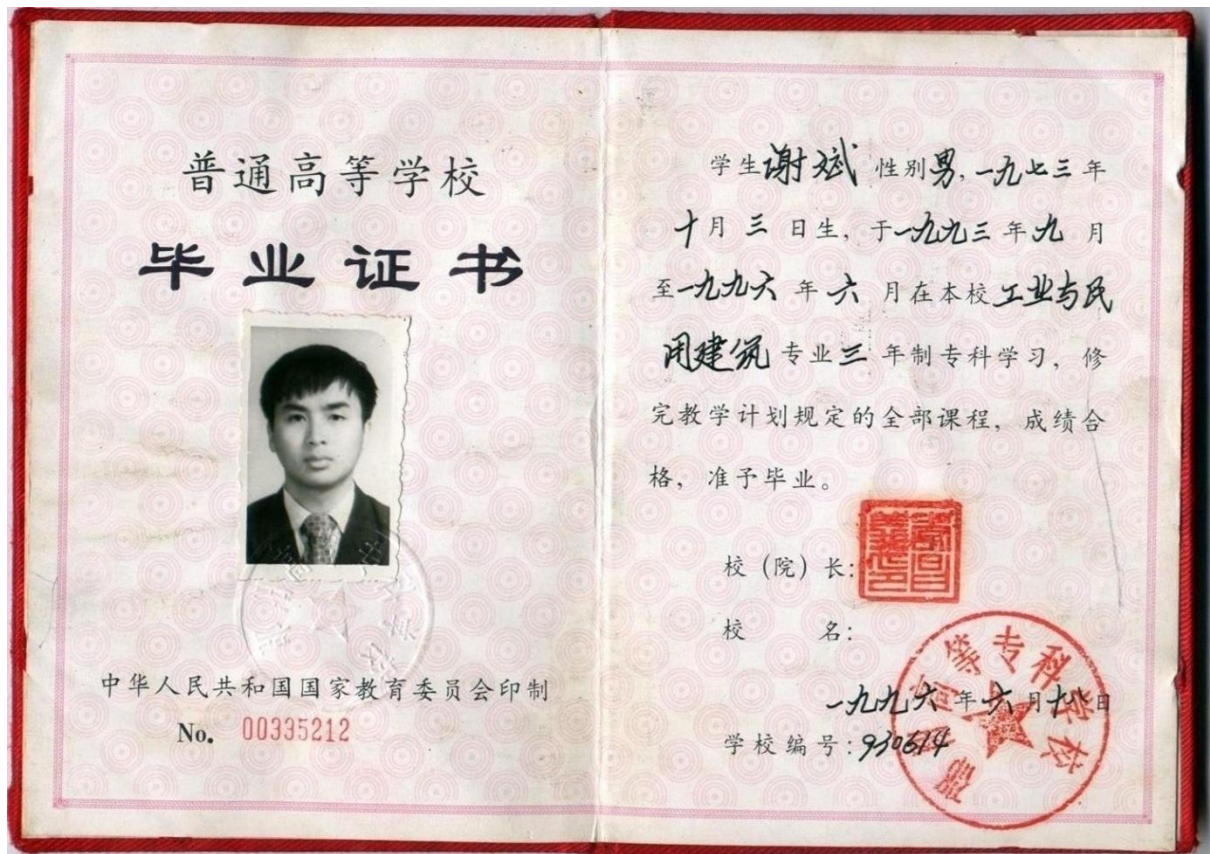 普通高等学校
毕业证书
中华人民共和国国家教育委员会印制
No. 00335212
学生谢斌 性别男，一九七三年
十月三日生，于一九九三年九月
至一九九六年六月在本校工业与民
用建筑专业三年制专科学习，修
完教学计划规定的全部课程，成绩合
格，准予毕业。
校（院）长：
校 名：
高等专科学校
一九九六年六月十八日
学校编号：930614